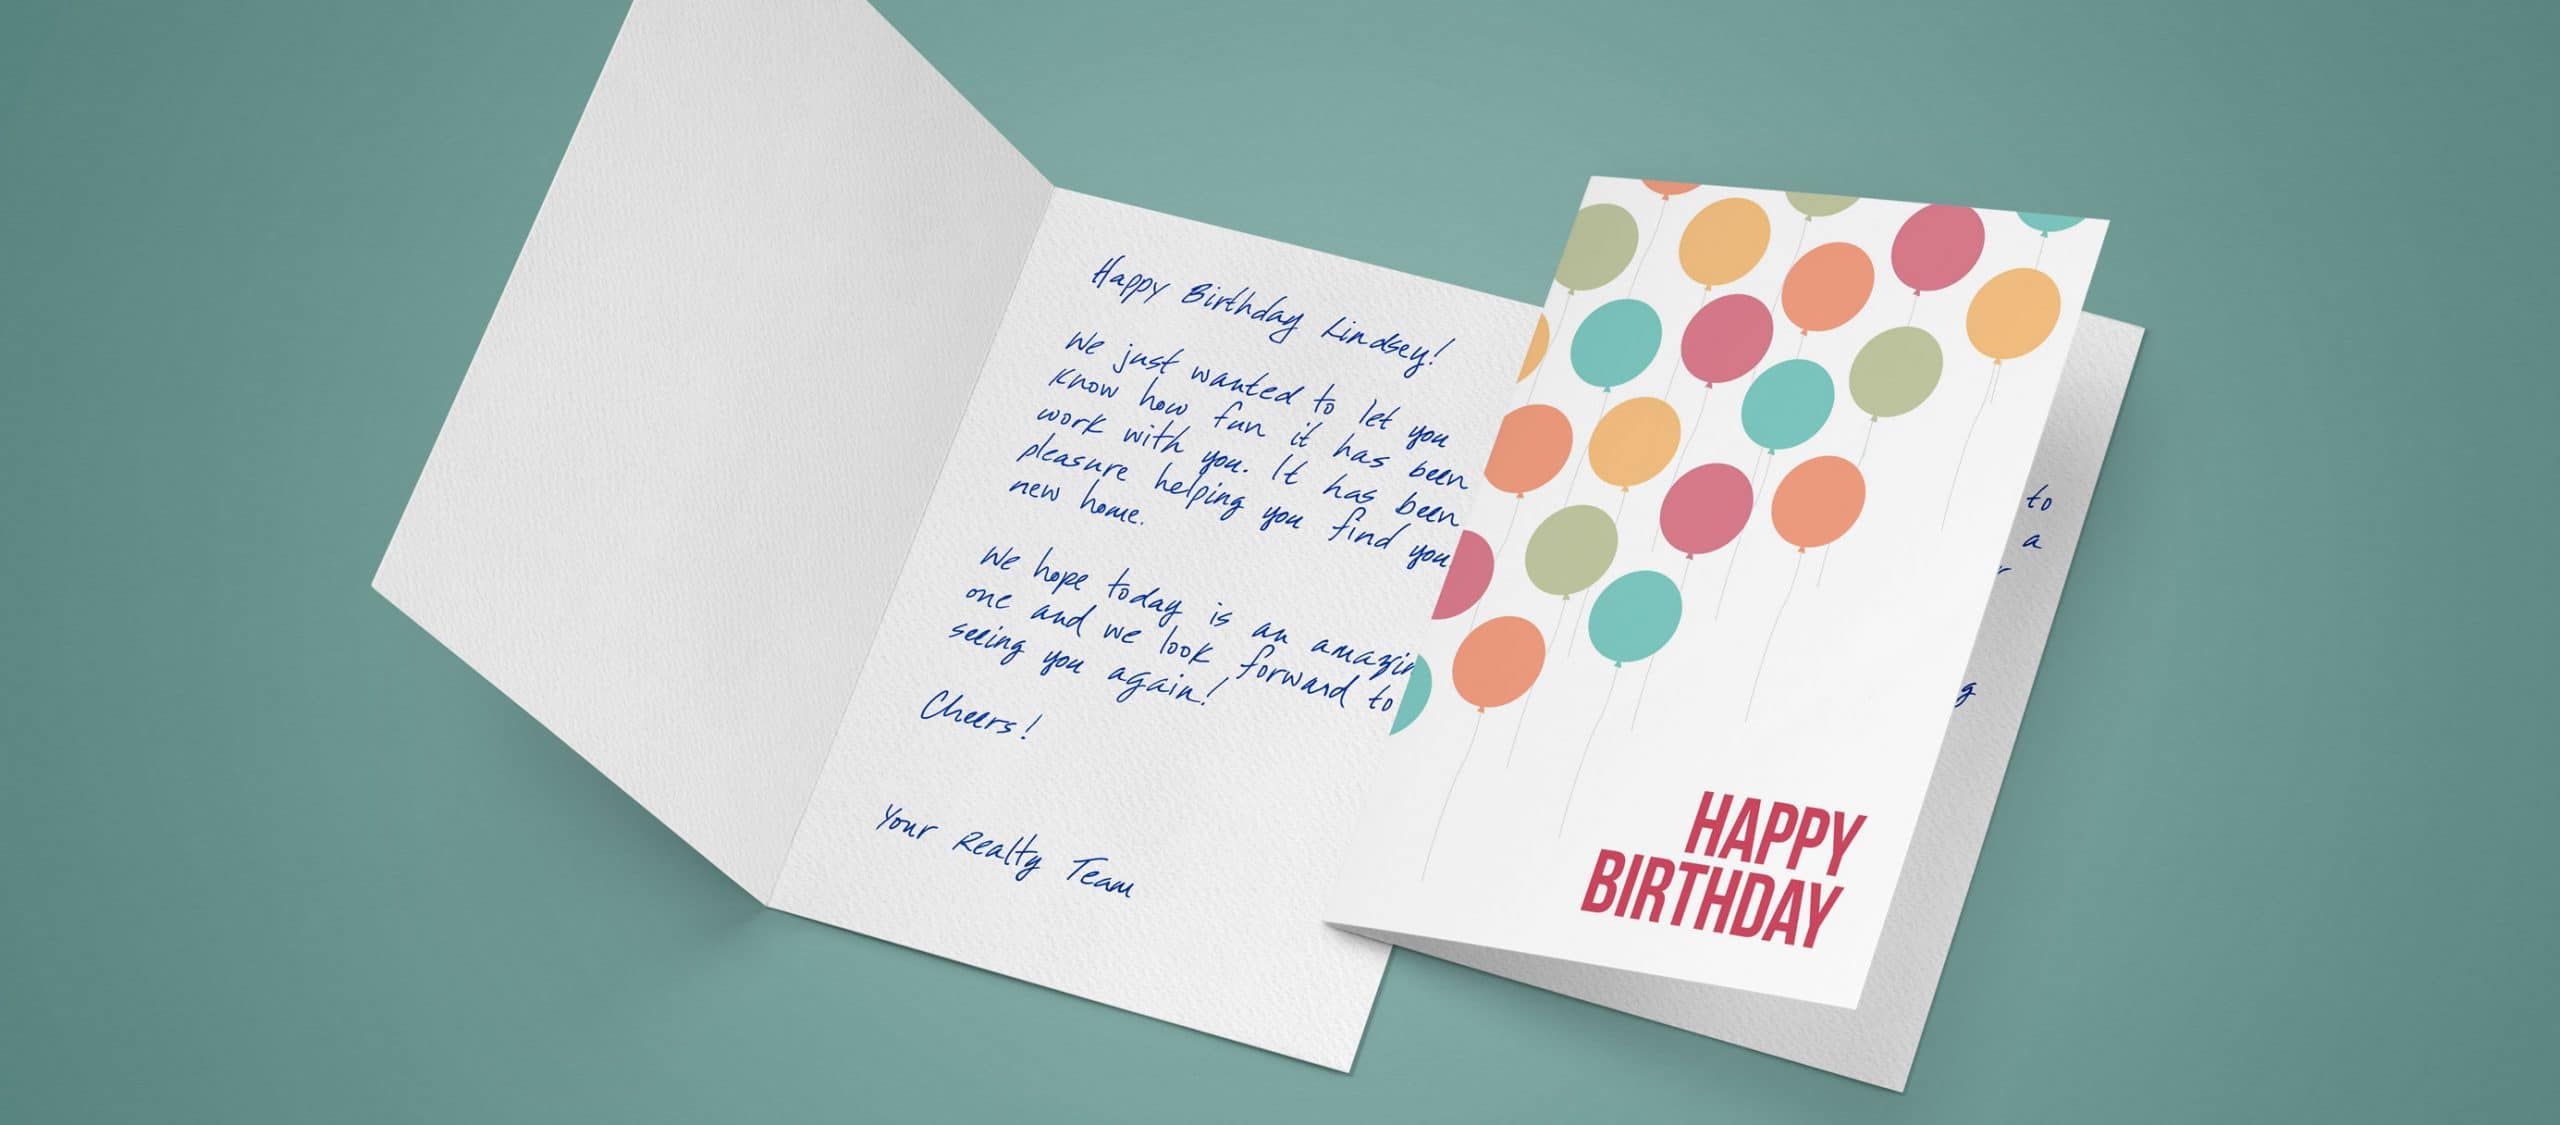 Happy Birthday Lindsey!
We just wanted to let you
know how fun it has been
work with you. It has been
pleasure helping you find you
new home.
We hope today is an amazin
one and we look forward to
seeing you again!
Cheers!
Your Realty Team
to
a
r
g
HAPPY
BIRTHDAY